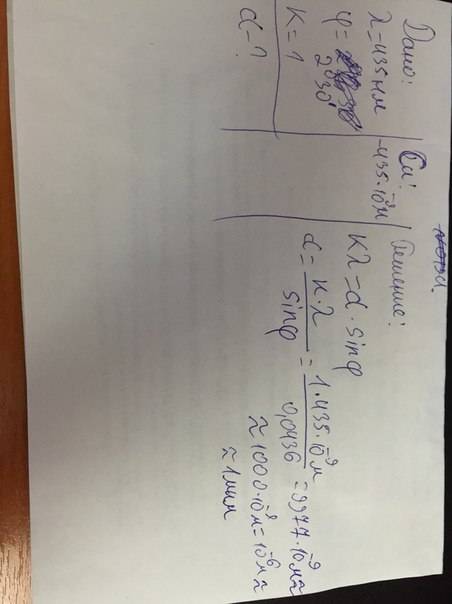 Дано:
λ=435нм
φ=
2°30'
K=1
d-?
Си:
435·10⁻⁹м
Решение:
Kλ=d·sinφ
d= K·λ / sinφ = 1·435·10⁻⁹м / 0,0436 = 9977·10⁻⁹м≈
≈1000·10⁻⁹м=10⁻⁶м≈
≈1мкм